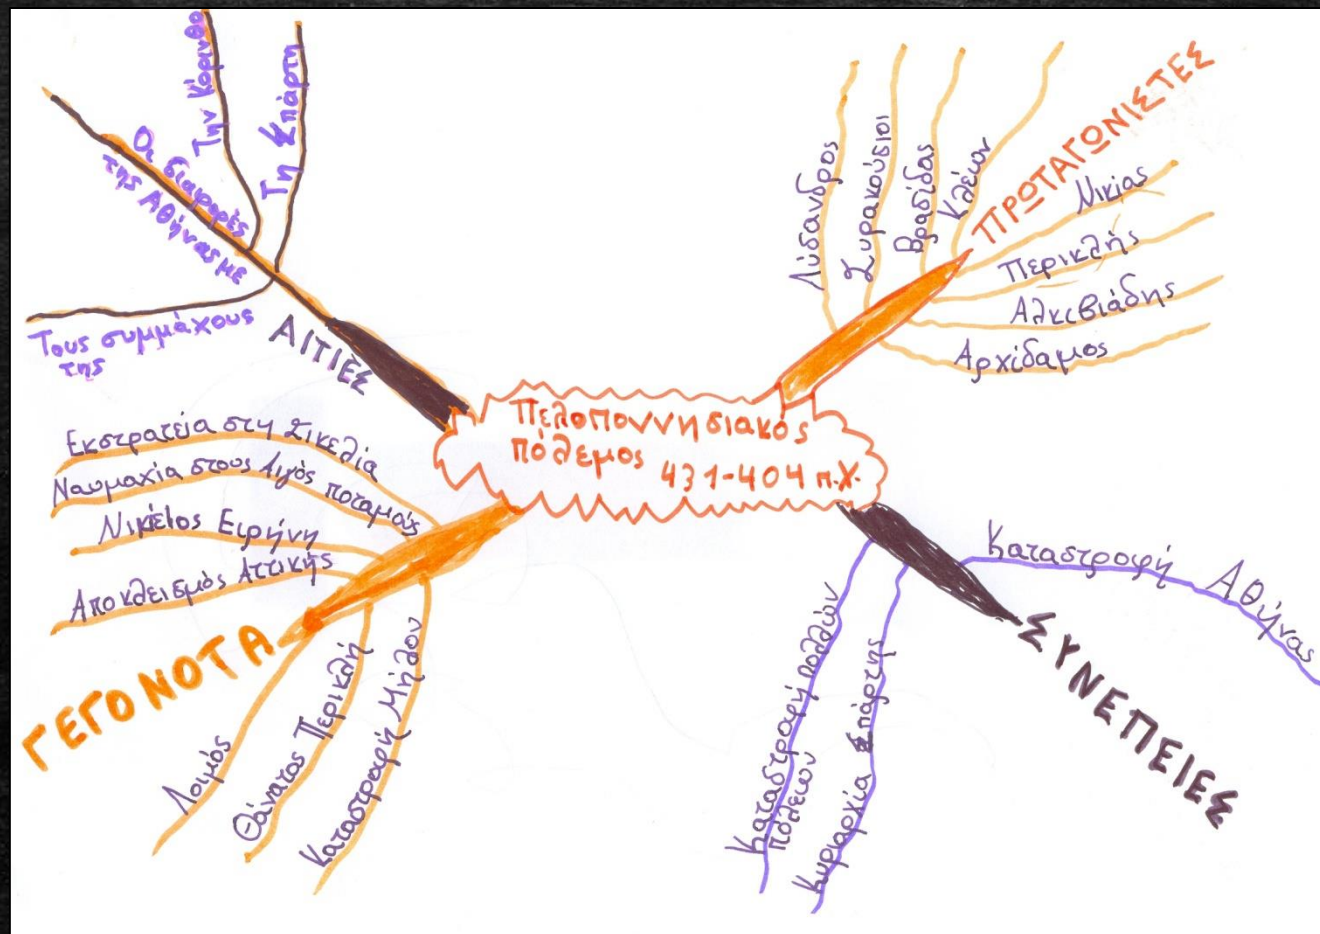 Πελοποννησιακός
πόλεμος 431-404 π.Χ.
ΑΙΤΙΕΣ
Οι διαφορές
της Αθήνας με
Την Κόρινθο
Τη Σπάρτη
Τους συμμάχους
της
ΠΡΩΤΑΓΩΝΙΣΤΕΣ
Λύσανδρος
Συρακούσιοι
Βρασίδας
Κλέων
Νικίας
Περικλής
Αλκιβιάδης
Αρχίδαμος
ΓΕΓΟΝΟΤΑ
Εκστρατεία στη Σικελία
Ναυμαχία στους Αιγός ποταμούς
Νικίειος Ειρήνη
Αποκλεισμός Αττικής
Λοιμός
Θάνατος Περικλή
Καταστροφή Μήλου
ΣΥΝΕΠΕΙΕΣ
Καταστροφή πολλών
πόλεων
Κυριαρχία Σπάρτης
Καταστροφή Αθήνας